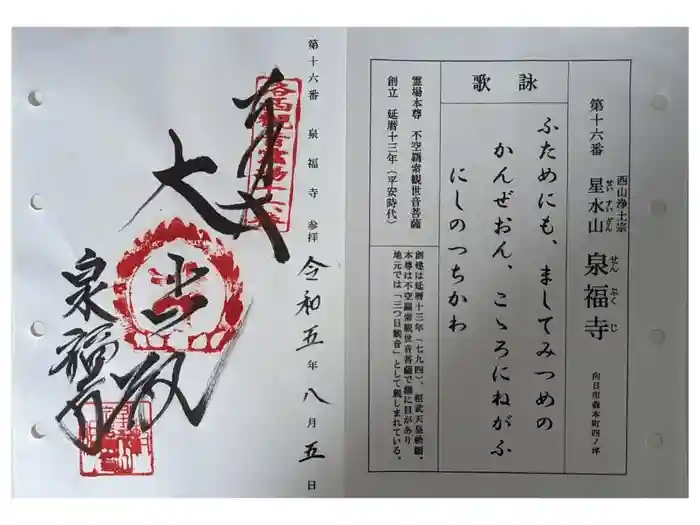 第十六番
西山浄土宗
星水山 泉福寺
せいすいざん せんぷくじ
向日市森本町四ノ坪
詠歌
ふためにも、ましてみつめの
かんぜおん、こゝろにねがふ
にしのつちかわ
霊場本尊 不空羂索観世音菩薩
創立 延暦十三年（平安時代）
創建は延暦十三年（七九四）、桓武天皇勅願。
本尊は不空羂索観世音菩薩で額に目があり
地元では「三つ目観音」として親しまれている。
第十六番 泉福寺 参拝
令和五年八月五日
洛西観音霊場十六番
大
泉福寺